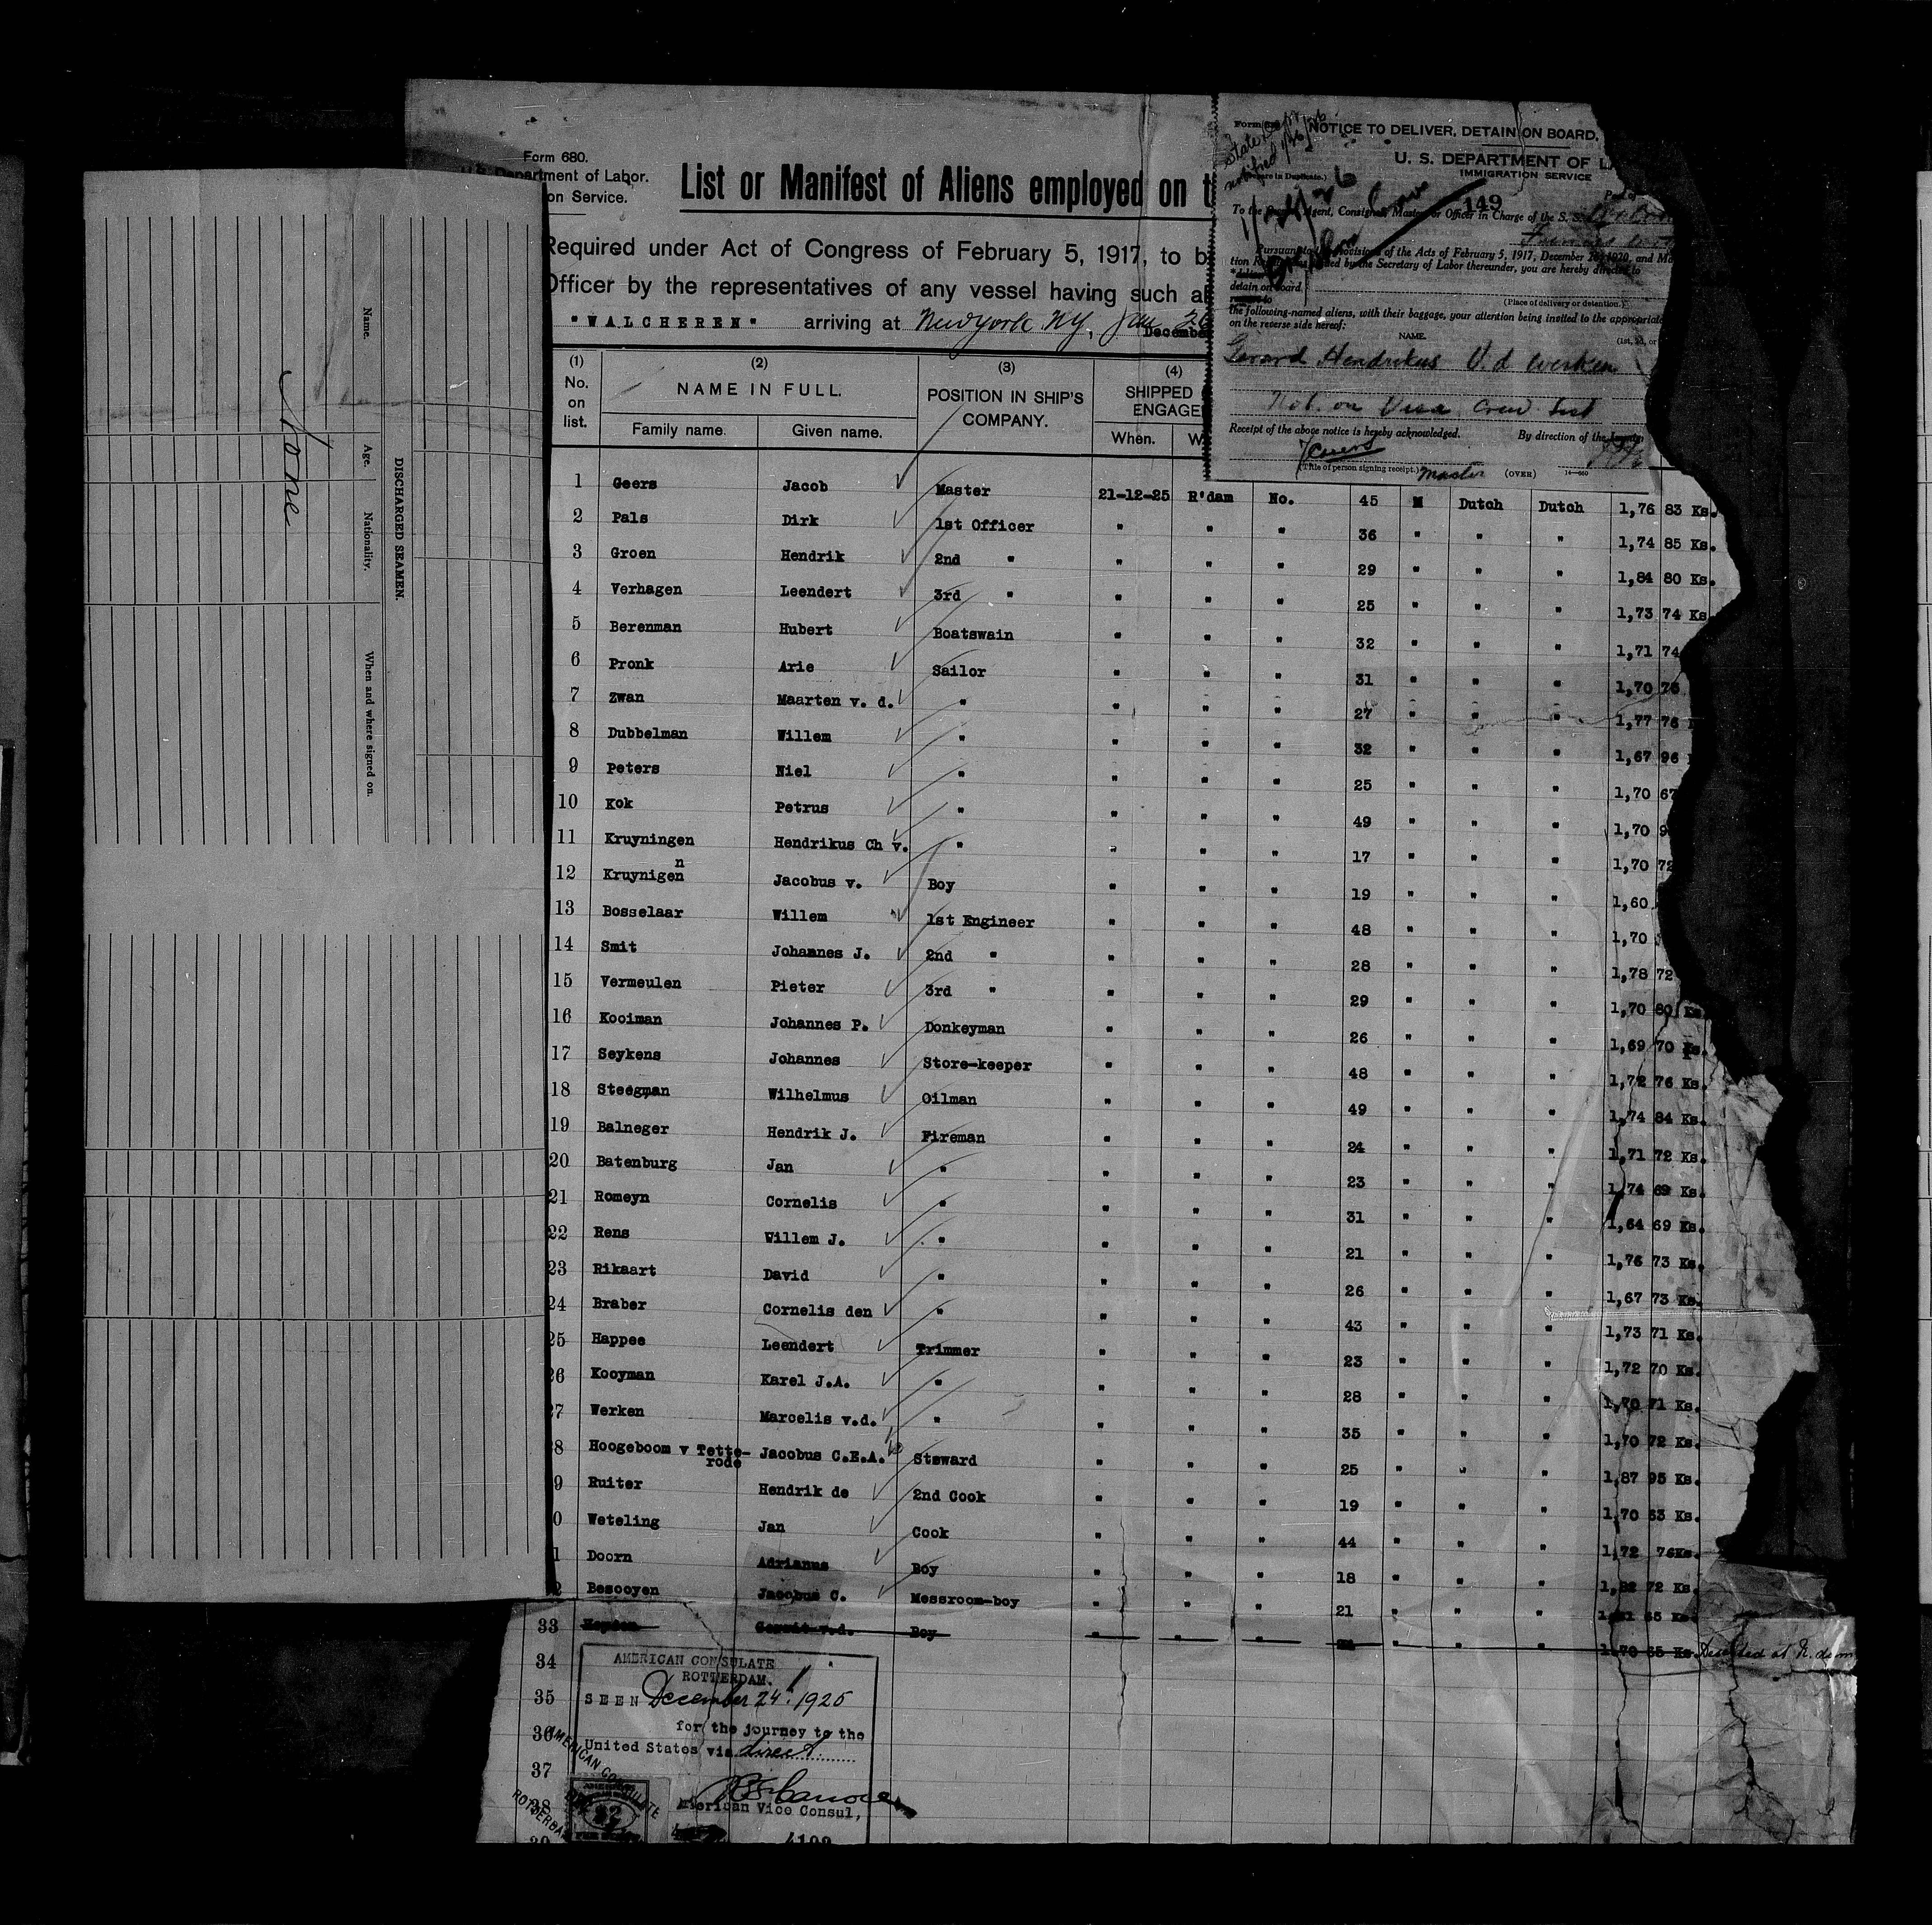 Form 680.
U.S. Department of Labor.
on Service.
List or Manifest of Aliens employed on t
Required under Act of Congress of February 5, 1917, to b
Officer by the representatives of any vessel having such al
"WALCHEREN" arriving at New York NY, Jan 26
December
(1) No. on list.
(2) NAME IN FULL.
Family name. Given name.
(3) POSITION IN SHIP'S COMPANY.
(4) SHIPPED ENGAGE
When. W
1 Geers Jacob Master 21-12-25 R'dam No. 45 M Dutch Dutch 1,76 83 Ks.
2 Pals Dirk 1st Officer " " " 36 " " " 1,74 85 Ks.
3 Groen Hendrik 2nd " " " " 29 " " " 1,84 80 Ks.
4 Verhagen Leendert 3rd " " " " 25 " " " 1,73 74 Ks
5 Berenman Hubert Boatswain " " " 32 " " " 1,71 74
6 Pronk Arie Sailor " " " 31 " " " 1,70 75
7 Zwan Maarten v. d. " " " " 27 " " " 1,77 76
8 Dubbelman Willem " " " " 32 " " " 1,67 96
9 Peters Niel " " " " 25 " " " 1,70 67
10 Kok Petrus " " " " 49 " " " 1,70 9
11 Kruyningen Hendrikus Ch v. " " " " 17 " " " 1,70 72
n
12 Kruynigen Jacobus v. Boy " " " 19 " " " 1,60
13 Bosselaar Willem 1st Engineer " " " 48 " " " 1,70
14 Smit Johannes J. 2nd " " " " 28 " " " 1,78 72
15 Vermeulen Pieter 3rd " " " " 29 " " " 1,70 80 Ks
16 Kooiman Johannes P. Donkeyman " " " 26 " " " 1,69 70 Ks.
17 Seykens Johannes Store-keeper " " " 48 " " " 1,72 76 Ks.
18 Steegman Wilhelmus Oilman " " " 49 " " " 1,74 84 Ks.
19 Balneger Hendrik J. Fireman " " " 24 " " " 1,71 72 Ks.
20 Batenburg Jan " " " " 23 " " " 1,74 69 Ks.
21 Romeyn Cornelis " " " " 31 " " " 1,64 69 Ks.
22 Rens Willem J. " " " " 21 " " " 1,76 73 Ks.
23 Rikaart David " " " " 26 " " " 1,67 73 Ks.
24 Braber Cornelis den " " " " 43 " " " 1,73 71 Ks.
25 Happee Leendert Trimmer " " " 23 " " " 1,72 70 Ks.
26 Kooyman Karel J.A. " " " " 28 " " " 1,70 71 Ks.
27 Werken Marcelis v.d. " " " " 35 " " " 1,70 72 Ks.
8 Hoogeboom v Tette-rode Jacobus C.E.A. Steward " " " 25 " " " 1,87 95 Ks.
9 Ruiter Hendrik de 2nd Cook " " " 19 " " " 1,70 63 Ks.
0 Weteling Jan Cook " " " 44 " " " 1,72 76Ks.
1 Doorn Adrianus Boy " " " 18 " " " 1,82 72 Ks.
2 Besooyen Jacobus C. Messroom-boy " " " 21 " " " 65 Ks
33 Heyden Gerrit v.d. Boy " " " " " " 1,70 65 Ks. Deserted at R.dam
34
35
36
37
38
39
AMERICAN CONSULATE
ROTTERDAM.
SEEN December 24! 1925
for the journey to the
United States via direct
American Vice Consul,
4109
AMERICAN CONSULATE
ROTTERDA
2
Form
State Dept
notified 1/26/26
NOTICE TO DELIVER, DETAIN ON BOARD,
U. S. DEPARTMENT OF LA
IMMIGRATION SERVICE
(Prepare in Duplicate.)
149
Port of
To the Owner, Agent, Consignee, Master, or Officer in Charge of the S. S.
Pursuant to the provisions of the Acts of February 5, 1917, December 26, 1920, and Ma
tion Rules issued by the Secretary of Labor thereunder, you are hereby directed to
detain on board
(Place of delivery or detention.)
the following-named aliens, with their baggage, your attention being invited to the appropriate
on the reverse side hereof:
NAME.
(1st, 2d, or
Gerard Hendrikus V.d Werken
Not on Visa crew list
Receipt of the above notice is hereby acknowledged. By direction of the
JGeers
(Title of person signing receipt.) Master (OVER) 14—660
DISCHARGED SEAMEN.
Name. Age. Nationality. When and where signed on.
None